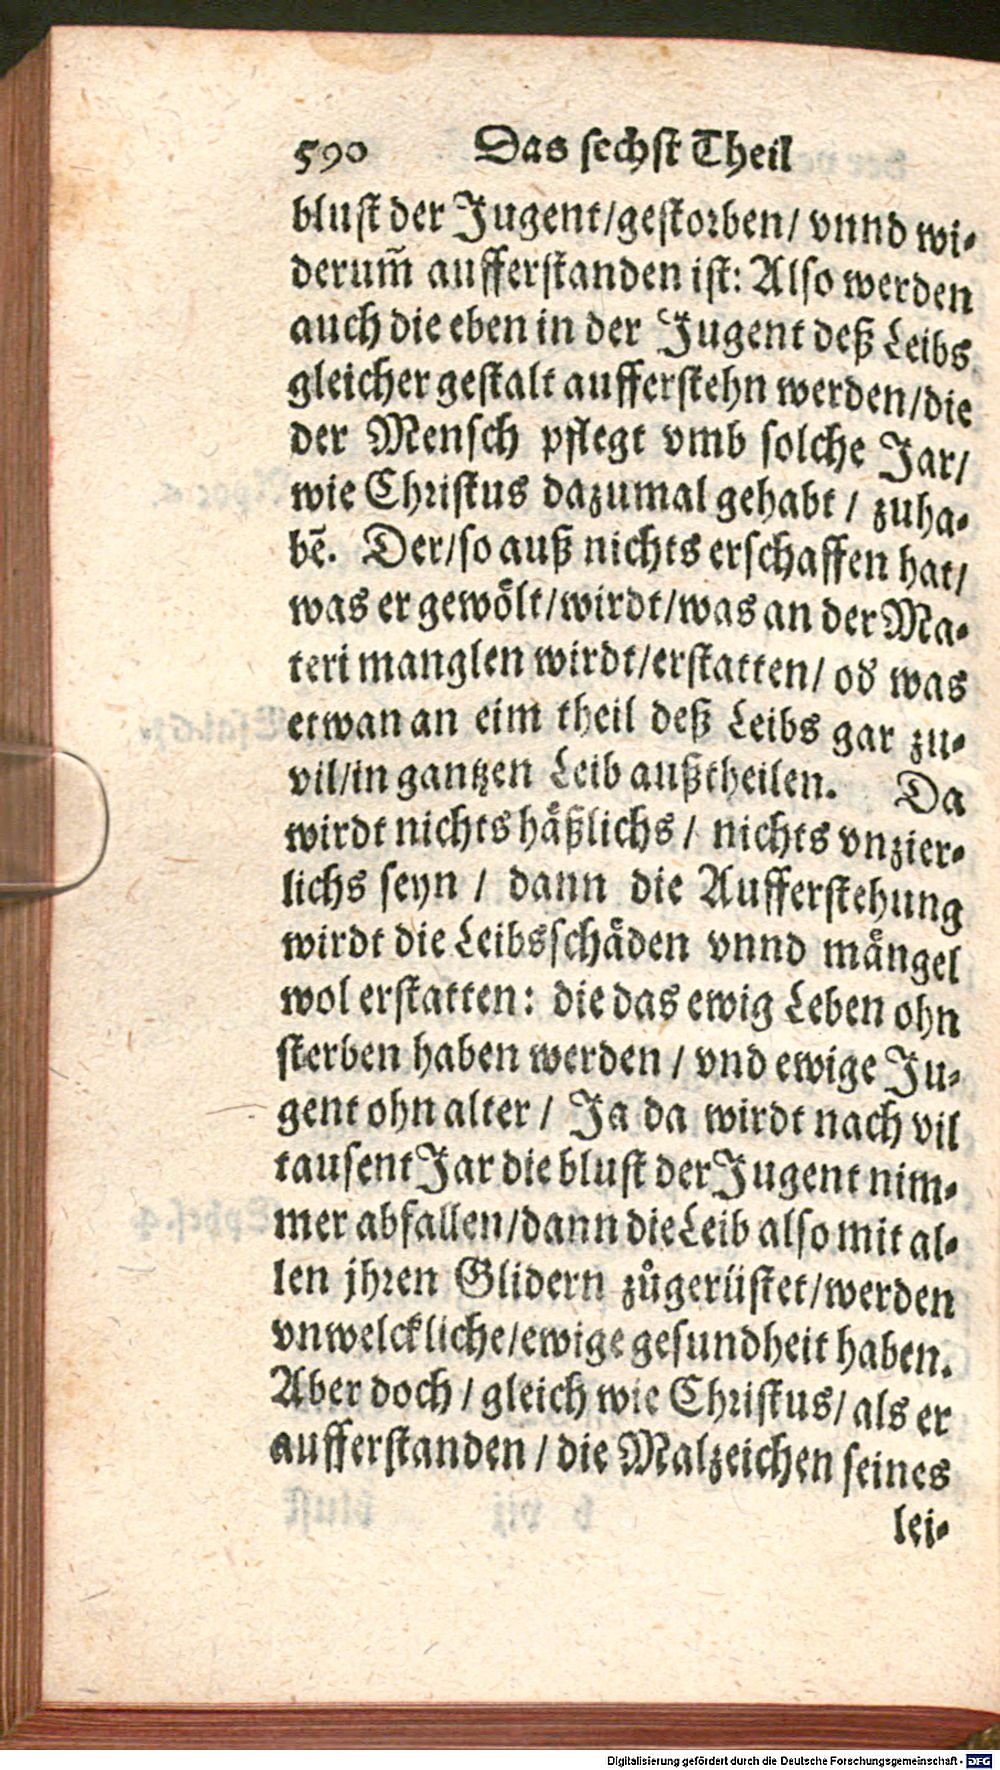 590 Das sechst Theil
blust der Jugent/gestorben/ vnnd wi-
derum̃ aufferstanden ist: Also werden
auch die eben in der Jugent deß Leibs
gleicher gestalt aufferstehn werden/die
der Mensch pflegt vmb solche Jar/
wie Christus dazumal gehabt / zuha-
bẽ. Der/so auß nichts erschaffen hat/
was er gewoͤlt/wirdt/was an der Ma-
teri manglen wirdt/erstatten/ od was
etwan an eim theil deß Leibs gar zu-
vil/in gantzen Leib außtheilen. Da
wirdt nichts haͤßlichs / nichts vnzier-
lichs seyn / dann die Aufferstehung
wirdt die Leibsschaͤden vnnd maͤngel
wol erstatten: die das ewig Leben ohn
sterben haben werden / vnd ewige Ju-
gent ohn alter / Ja da wirdt nach vil
tausent Jar die blust der Jugent nim-
mer abfallen/dann die Leib also mit al-
len jhren Glidern zuͦgerüstet/werden
vnwelckliche/ewige gesundheit haben.
Aber doch / gleich wie Christus/ als er
aufferstanden / die Malzeichen seines
lei-
Digitalisierung gefördert durch die Deutsche Forschungsgemeinschaft - DFG